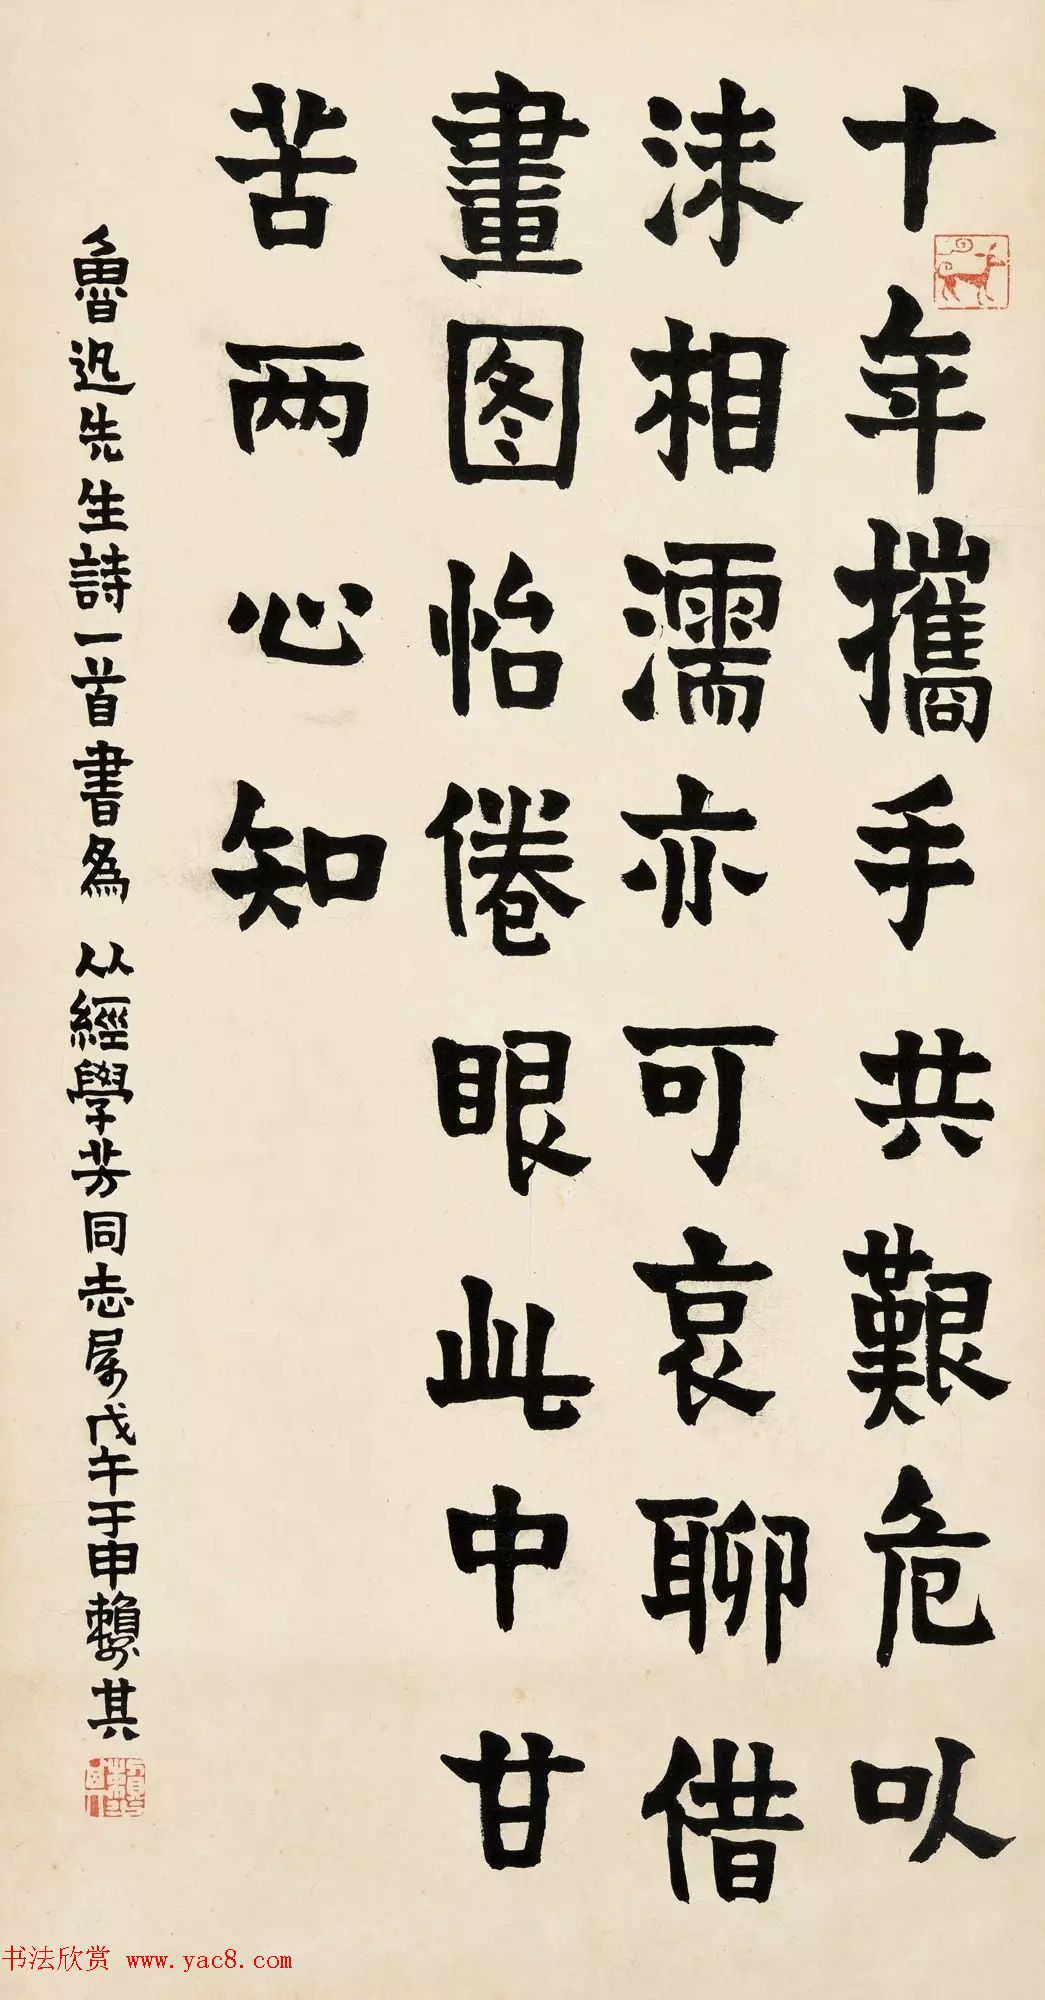 十年攜手共艱危以
沫相濡亦可哀聊借
畫图怡倦眼此中甘
苦两心知
魯迅先生詩一首書為 从經學芳同志属戊午于申賴少其
书法欣赏 www.yac8.com